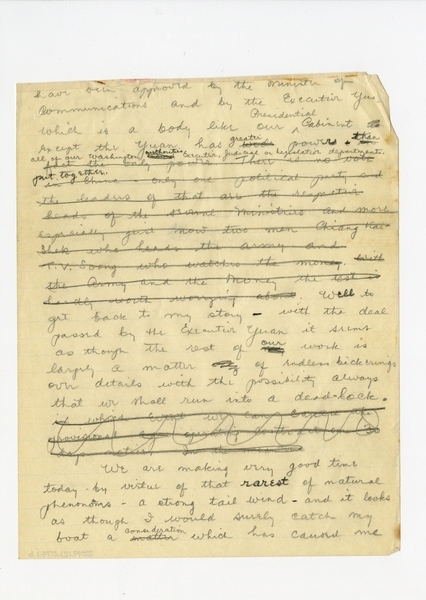 have been approved by the Minister of
Communications and by the Executive Yuan
which is a body like our Presidential Cabinet
except the Yuan has greater power than
all of our Washington executive, judicial or legislative departments
put together. There is no vote
in China only one political party and
the leaders of that are the respective
heads of the several Ministries and more
especially just now two men Chiang Kai
Shek who heads the army and
T.V. Soong who watches the money. With
the Army and the Money the rest is
hardly worth worrying about. Well to
get back to my story - with the deal
passed by the Executive Yuan it seems
as though the rest of our work is
largely a matter of endless bickerings
over details with the possibility always
that we shall run into a dead-lock.
We are making very good time
today - by virtue of that rarest of natural
phenomons - a strong tail wind - and it looks
as though I would surely catch my
boat a consideration matter which has caused me